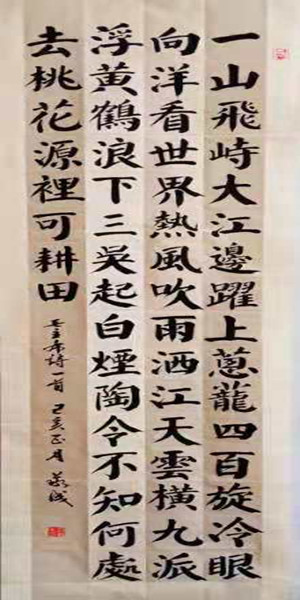 一山飛峙大江邊躍上蔥蘢四百旋冷眼
向洋看世界熱風吹雨洒江天雲橫九派
浮黃鶴浪下三吳起白煙陶令不知何處
去桃花源裡可耕田
毛主席詩一首 己亥正月